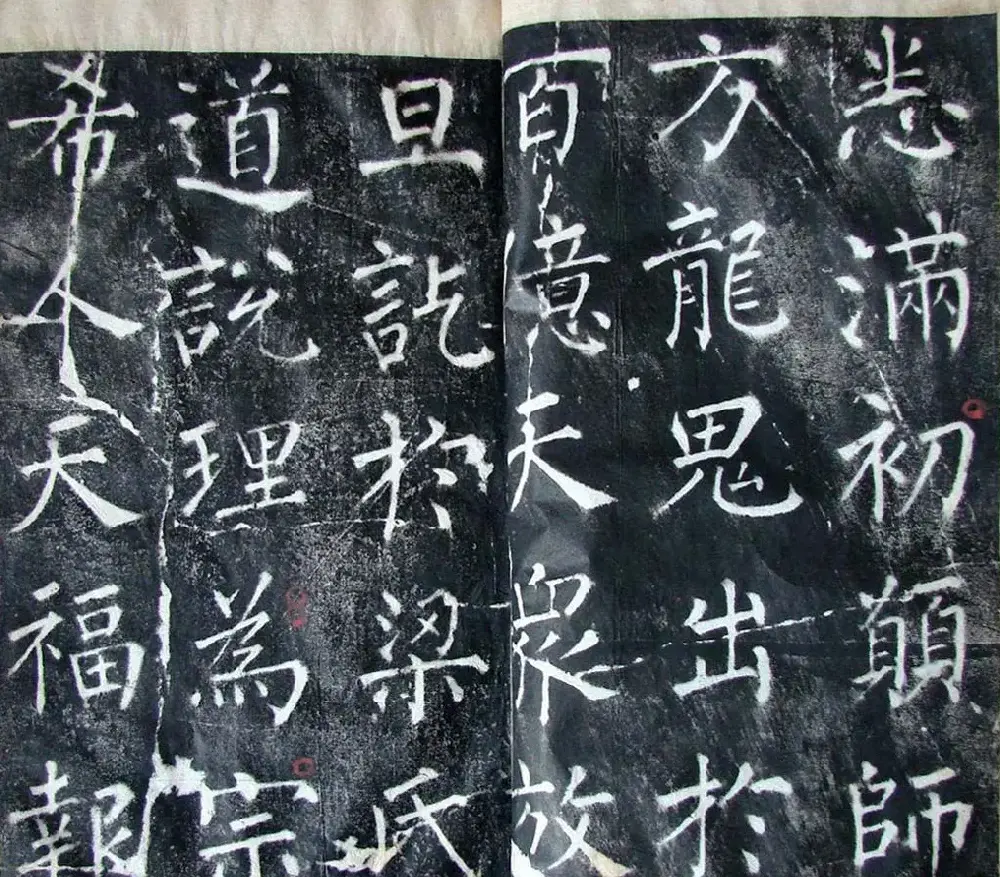 悉滿初願師
方龍鬼出於
百億天衆放
旦訖於梁氏
道說理為宗
希人天福報